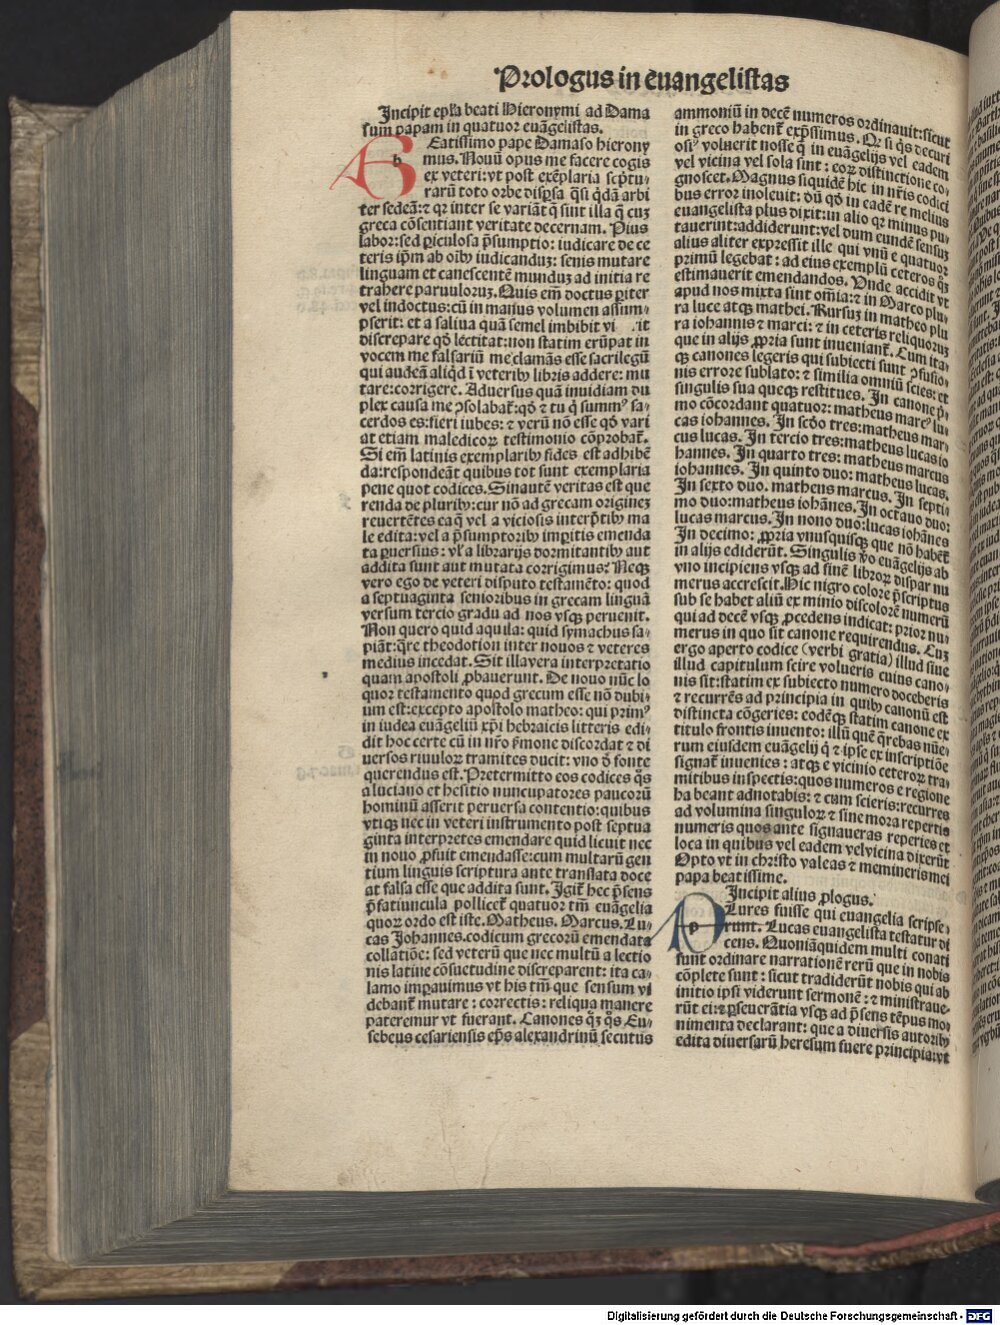 Prologus in euangelistas
Incipit epl'a beati Hieronymi ad Dama
sum papam in quatuor euāgelistas.
BEatissimo pape Damaso hierony
mus. Nouū opus me facere cogis
ex veteri: vt post exēplaria scptu-
rarū toto orbe dispsa q̄si q̄dā arbi
ter sedeā: ⁊ qꝛ inter se variāt q̄ sint illa q̄ cuꝫ
greca cōsentiant veritate decernam. Pius
labor: sed ꝑiculosa p̄sumptio: iudicare de ce
teris ip̄m ab oībꝰ iudicanduꝫ: senis mutare
linguam et canescentē munduꝫ ad initia re
trahere paruuloruꝫ. Quis em̄ doctus ꝑiter
vel indoctus: cū in manus volumen assum-
pserit: et a saliua quā semel imbibit vi it
discrepare qd̄ lectitat: non statim erūpat in
vocem me falsariū me clamās esse sacrilegū
qui audeā aliqd̄ ī veteribꝰ libris addere: mu
tare: corrigere. Aduersus quā inuidiam du
plex causa me ꝯsolabat̄: qd̄ ⁊ tu q̄ summꝰ sa-
cerdos es: fieri iubes: ⁊ verū nō esse qd̄ vari
at etiam maledicoꝝ testimonio cōprobat̄.
Si em̄ latinis exemplaribꝰ fides est adhibē
da: respondeāt quibus tot sunt exemplaria
pene quot codices. Sinautē veritas est que
renda de pluribꝰ: cur nō ad grecam origineꝫ
reuertētes ea q̄ vel a viciosis interp̄tibꝰ ma
le edita: vel a p̄sumptoribꝰ imꝑitis emenda
ta ꝑuersius: vl'a librarijs dormitantibꝰ aut
addita sunt aut mutata corrigimus? Neqꝫ
vero ego de veteri disputo testamēto: quod
a septuaginta senioribus in grecam linguā
versum tercio gradu ad nos vsqꝫ peruenit.
Non quero quid aquila: quid symachus sa-
piāt: q̄re theodotion inter nouos ⁊ veteres
medius incedat. Sit illa vera interpretatio
quam apostoli ꝓbauerunt. De nouo nūc lo
quoꝛ testamento quod grecum esse nō dubi-
um est: excepto apostolo matheo: qui primꝰ
in iudea euāgeliū xp̄i hebraicis litteris edi-
dit hoc certe cū in nr̄o s̄mone discordat ⁊ di
uersos riuuloꝝ tramites ducit: vno d̄ fonte
querendus est. Pretermitto eos codices q̄s
a luciano et hesitio nuncupatores paucorū
hominū asserit peruersa contentio: quibus
vtiqꝫ nec in veteri instrumento post septua
ginta interpretes emendare quid licuit nec
in nouo ꝓfuit emendasse: cum multarū gen
tium linguis scriptura ante translata doce
at falsa esse que addita sunt. Igit̄ hec p̄sens
p̄fatiuncula pollicet̄ quatuor tm̄ euāgelia
quoꝝ ordo est iste. Matheus. Marcus. Lu-
cas Johannes. codicum grecorū emendata
collatiōe: sed veterū que nec multū a lectio
nis latine cōsuetudine discreparent: ita ca-
lamo imꝑauimus vt his tm̄ que sensum vi
debant̄ mutare: correctis: reliqua manere
pateremur vt fuerant. Canones qꝫ q̄s Eu-
sebeus cesariensis ep̄s alexandrinū secutus
ammoniū in decē numeros ordinauit: sicut
in greco habent̄ exp̄ssimus. Qꝛ si q̄s decuri
osꝰ voluerit nosse q̄ in euāgelijs vel eadem
vel vicina vel sola sunt: eoꝝ distinctione co-
gnoscet. Magnus siquidē hic in nr̄is codici
bus error inoleuit: dū qd̄ in eadē re melius
euangelista plus dixit: in alio qꝛ minus pu-
tauerint: addiderunt: vel dum eundē sensuꝫ
alius aliter expressit ille qui vnū e quatuor
primū legebat: ad eius exemplū ceteros q̄qꝫ
estimauerit emendandos. Unde accidit vt
apud nos mixta sint om̄ia: ⁊ in Marco plu-
ra luce atqꝫ mathei. Rursuꝫ in matheo plu
ra iohannis ⁊ marci: ⁊ in ceteris reliquoruꝫ
que in alijs ꝓpria sunt inueniant̄. Cum ita-
qꝫ canones legeris qui subiecti sunt ꝯfusio-
nis errore sublato: ⁊ similia omniū scies: et
singulis sua queqꝫ restitues. In canone p̄-
mo cōcordant quatuor: matheus marcꝰ lu-
cas iohannes. In scdo tres: matheus mar-
cus lucas. In tercio tres: matheus lucas io
hannes. In quarto tres: matheus marcus
iohannes. In quinto duo: matheus lucas.
In sexto duo. matheus marcus. In septi-
mo duo: matheus iohānes. In octauo duo:
lucas marcus. In nono duo: lucas iohānes
In decimo: ꝓpria vnusquisqꝫ que nō habēt̄
in alijs ediderūt. Singulis v̄o euāgelijs ab
vno incipiens vsqꝫ ad finē libroꝝ dispar nu
merus accrescit. Hic nigro colore p̄scriptus
sub se habet aliū ex minio discolorē numerū
qui ad decē vsqꝫ ꝓcedens indicat: prior nu-
merus in quo sit canone requirendus. Cuꝫ
ergo aperto codice (verbi gratia) illud siue
illud capitulum scire volueris cuius cano-
nis sit: statim ex subiecto numero doceberis
⁊ recurrēs ad principia in quibꝰ canonū est
distincta cōgeries: eodēqꝫ statim canone ex
titulo frontis inuento: illū quē q̄rebas nūe-
rum eiusdem euāgelij q̄ ⁊ ipse ex inscriptiōe
signat̄ inuenies: atqꝫ e vicinio ceteroꝝ tra-
mitibus inspectis: quos numeros e regione
ha beant adnotabis: ⁊ cum scieris: recurres
ad volumina singuloꝝ ⁊ sine mora repertis
numeris quos ante signaueras reperies et
loca in quibus vel eadem vel vicina dixerūt
Opto vt in christo valeas ⁊ memineris mei
papa beatissime.
Incipit alius ꝓlogus.
PLures fuisse qui euangelia scripse-
runt. Lucas euangelista testatur di
cens. Quoniāquidem multi conati
sunt ordinare narrationē rerū que in nobis
cōplete sunt: sicut tradiderūt nobis qui ab
initio ipsi viderunt sermonē: ⁊ ministraue-
rūt ei: ⁊ ꝑseuerātia vsqꝫ ad p̄sens tēpus mo-
nimenta declarant: que a diuersis autoribꝰ
edita diuersarū heresum fuere principia: vt
Digitalisierung gefördert durch die Deutsche Forschungsgemeinschaft - DFG